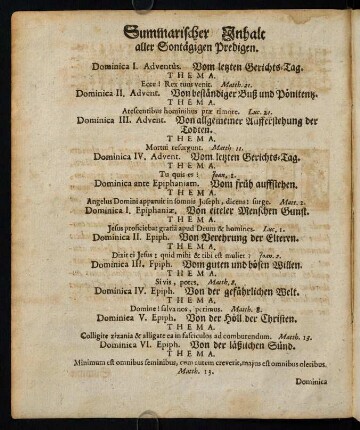 Summarischer Inhalt
aller Sontägigen Predigen.
Dominica I. Adventûs. Vom letzten Gerichts-Tag.
THEMA.
Ecce! Rex tuus venit. Matth. 21.
Dominica II. Advent. Von beständiger Buß und Pönitentz.
THEMA.
Arescentibus hominibus præ timore. Luc. 21.
Dominica III. Advent. Von allgemeiner Aufferstehung der
Todten.
THEMA.
Mortui resurgunt. Matth. 11.
Dominica IV. Advent. Vom letzten Gerichts-Tag.
THEMA.
Tu quis es? Joan. 1.
Dominica ante Epiphaniam. Vom früh auffstehen.
THEMA.
Angelus Domini apparuit in somnis Joseph, dicens: surge. Matt. 2.
Dominica I. Epiphaniæ. Von eiteler Menschen Gunst.
THEMA.
Jesus proficiebat gratiâ apud Deum & homines. Luc. 2.
Dominica II. Epiph. Von Verehrung der Elteren.
THEMA.
Dixit ei Jesus: quid mihi & tibi est mulier? Joan. 2.
Dominica III. Epiph. Vom guten und bösen Willen.
THEMA.
Si vis, potes. Matth. 8.
Dominica IV. Epiph. Von der gefährlichen Welt.
THEMA.
Domine! salva nos, perimus. Matth. 8.
Dominica V. Epiph. Von der Höll der Christen.
THEMA.
Colligite zizania & alligate ea in fasciculos ad comburendum. Matth. 13.
Dominica VI. Epiph. Von der läßlichen Sünd.
THEMA.
Minimum est omnibus seminibus, cum autem creverit, majus est omnibus oleribus.
Matth. 13.
Dominica